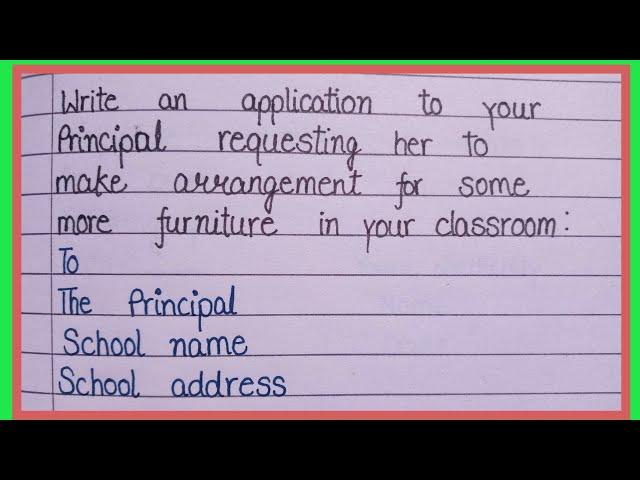 Write an application to your
Principal requesting her to
make arrangement for some
more furniture in your classroom:
To
The Principal
School name
School address